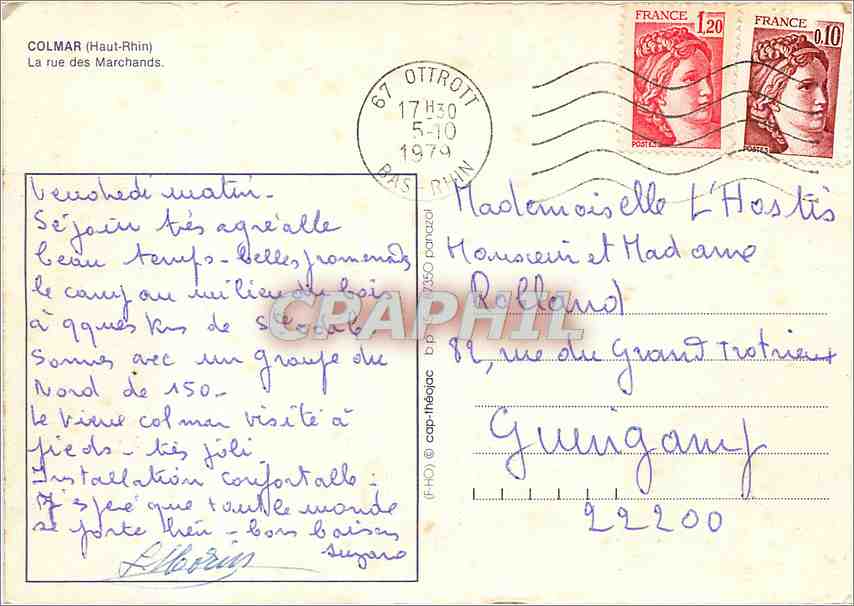 COLMAR (Haut-Rhin)
La rue des Marchands.
FRANCE
1,20
POSTES
FRANCE
0,10
POSTES
67 OTTROTT
17H30
5-10
1979
BAS-RHIN
Vendredi matin-
Séjour très agréable
beau temps-belles promenades
le camp au milieu du bois
à qques kms de Ste Odile
Sommes avec un groupe du
Nord de 150-
Le vieux colmar visité à
pieds - très joli
Installation confortable.
J'espère que tout le monde
se porte bien - bons baisers
Suzane
Mademoiselle L'Hostis
Monsieur et Madame
Rolland
82, rue du Grand Trotrieux
Guingamp
22200
(F-HO) © cap-théojac bp 87350 panazol
CPAPHIL